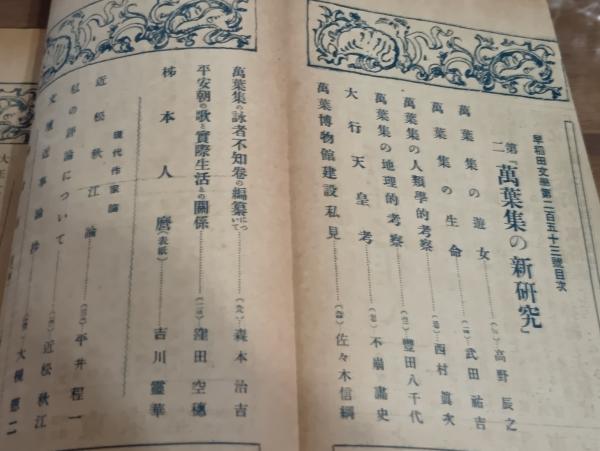 早稻田文學第二百五十三號目次
第二「萬葉集の新研究」
萬葉集の遊女…………高野辰之
萬葉集の生命…………武田祐吉
萬葉集の人類學的考察…………西村眞次
萬葉集の地理的考察…………豐田八千代
大行天皇考…………不崩畵史
萬葉博物館建設私見…………佐々木信綱
萬葉集の詠者不知卷の編纂について…………森本治吉
平安朝の歌と實際生活との關係…………窪田空穗
柹本人麿(表紙)…………吉川靈華
現代作家論
近松秋江論…………平井程一
私の評論について…………近松秋江
文壇近事論抄…………大槻憲二
大正